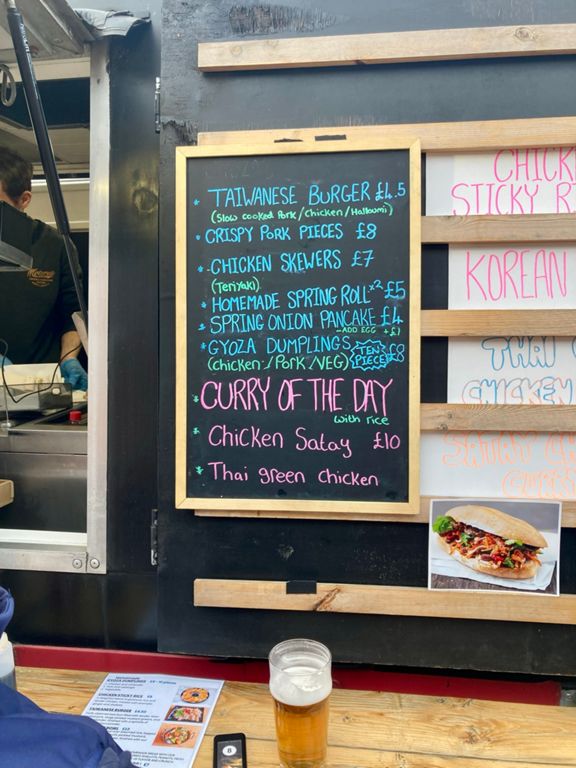 TAIWANESE BURGER £4.5
(Slow cooked Pork/Chicken/Halloumi)
CRISPY PORK PIECES £8
CHICKEN SKEWERS £7
(Teriyaki)
HOMEMADE SPRING ROLL x2 £5
SPRING ONION PANCAKE £4
-ADD EGG +£1
GYOZA DUMPLINGS TEN PIECE £8
(Chicken/Pork/VEG)
CURRY OF THE DAY
with rice
Chicken Satay £10
Thai green chicken
STICKY
KOREAN
THAI
CHICKEN
SATAY
GYOZA DUMPLINGS
CHICKEN STICKY RICE
TAIWANESE BURGER
8